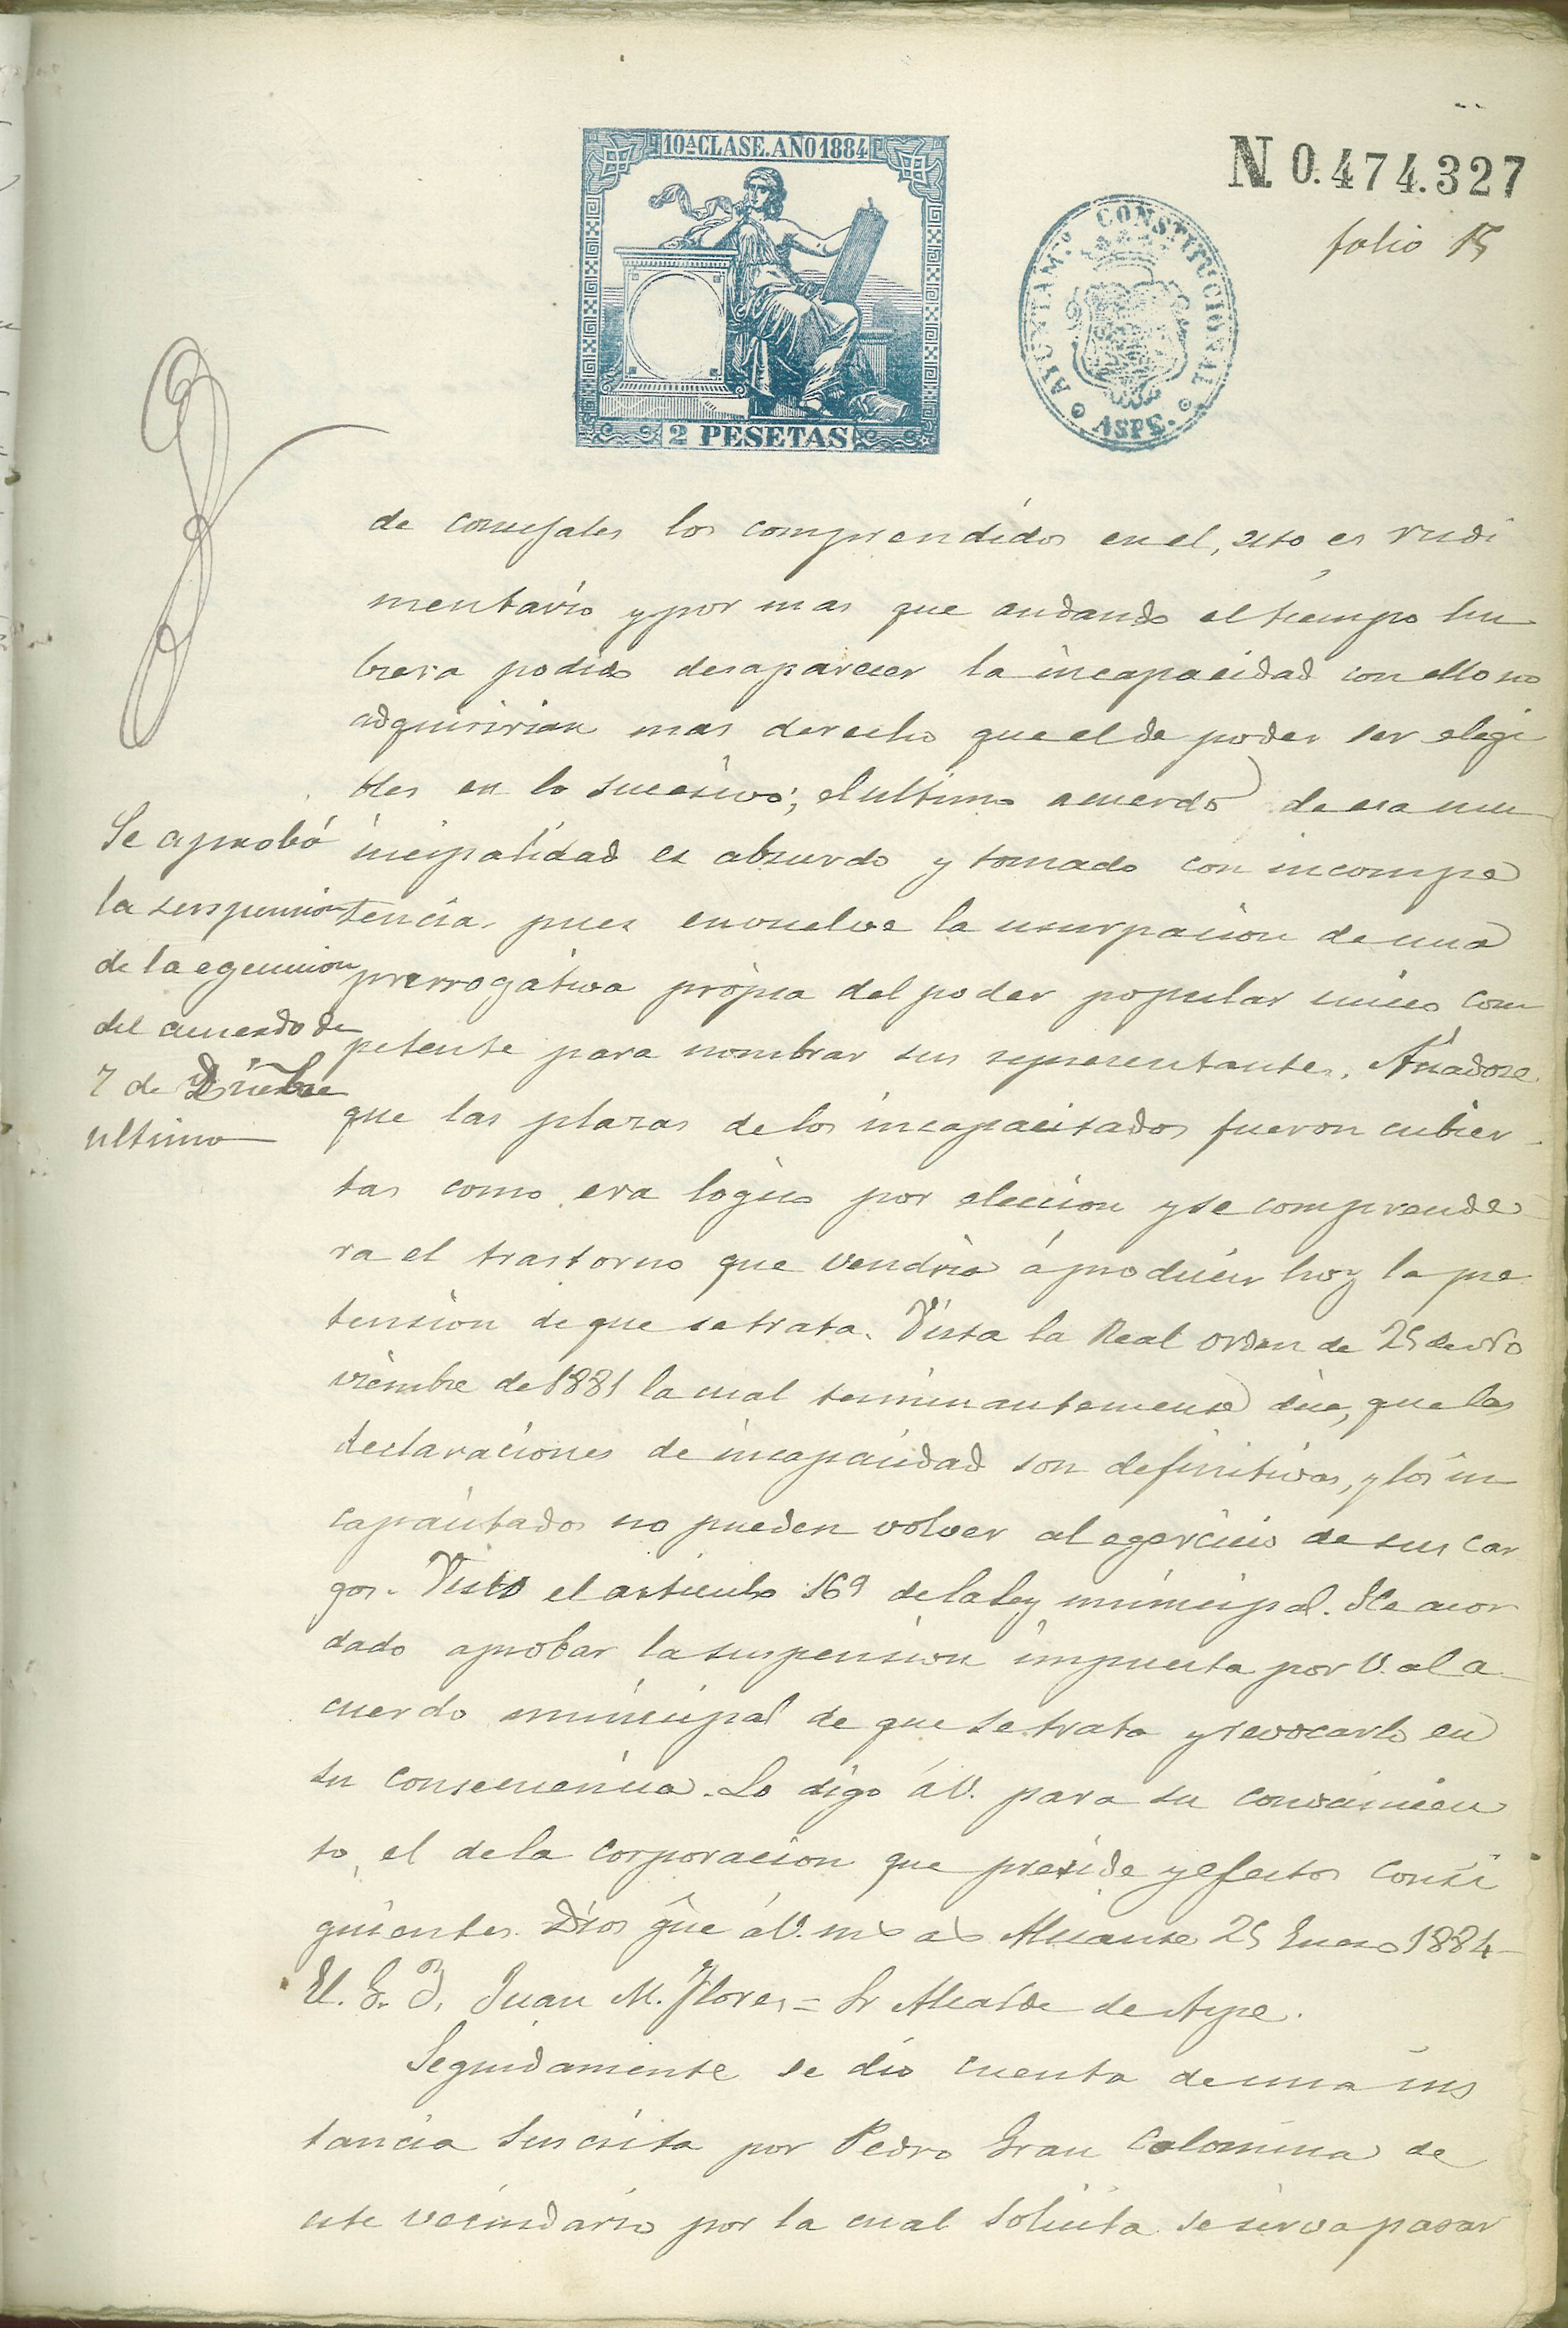 10ª CLASE. AÑO 1884
2 PESETAS
N. 0.474.327
AYUNTAM.º CONSTITUCIONAL
ASPE.
folio 15
de concejales los comprendidos en el, esto es rudi
mentario y por mas que andando el tiempo hu
biera podido desaparecer la incapacidad con ello no
adquiririan mas derecho que el de poder ser elegi
bles en lo sucesivo; el ultimo acuerdo de esa mu
nicipalidad es absurdo y tomado con incompe
tencia pues envuelve la usurpacion de una
prerrogativa própia del poder popular unico com
petente para nombrar sus representantes. Añadase
que las plazas de los incapacitados fueron cubier
tas como era logico por eleccion y se comprende
ra el trastorno que vendria á producir hoy la pre
tension de que se trata. Vista la Real orden de 25 de No
viembre de 1881 la cual terminantemente dice, que las
declaraciones de incapacidad son definitivas, y los in
capacitados no pueden volver al egercicio de sus car
gos. Visto el articulo 169 de la ley municipal. He acor
dado aprobar la suspension impuesta por V. al a
cuerdo municipal de que se trata y revocarlo en
su consecuencia. Lo digo á V. para su conocimien
to, el de la corporacion que preside y efectos consi
guientes. Dios gue á V. ms as Alicante 25 Enero 1884
El G. J. Juan M. Flores = Sr Alcalde de Aspe.
Seguidamente se dio cuenta de una ins
tancia suscrita por Pedro Gran Colomina de
este vecindario por la cual solicita se sirva pasar
Se aprobó
la suspension
de la egecucion
del acuerdo de
7 de Dicbre
ultimo